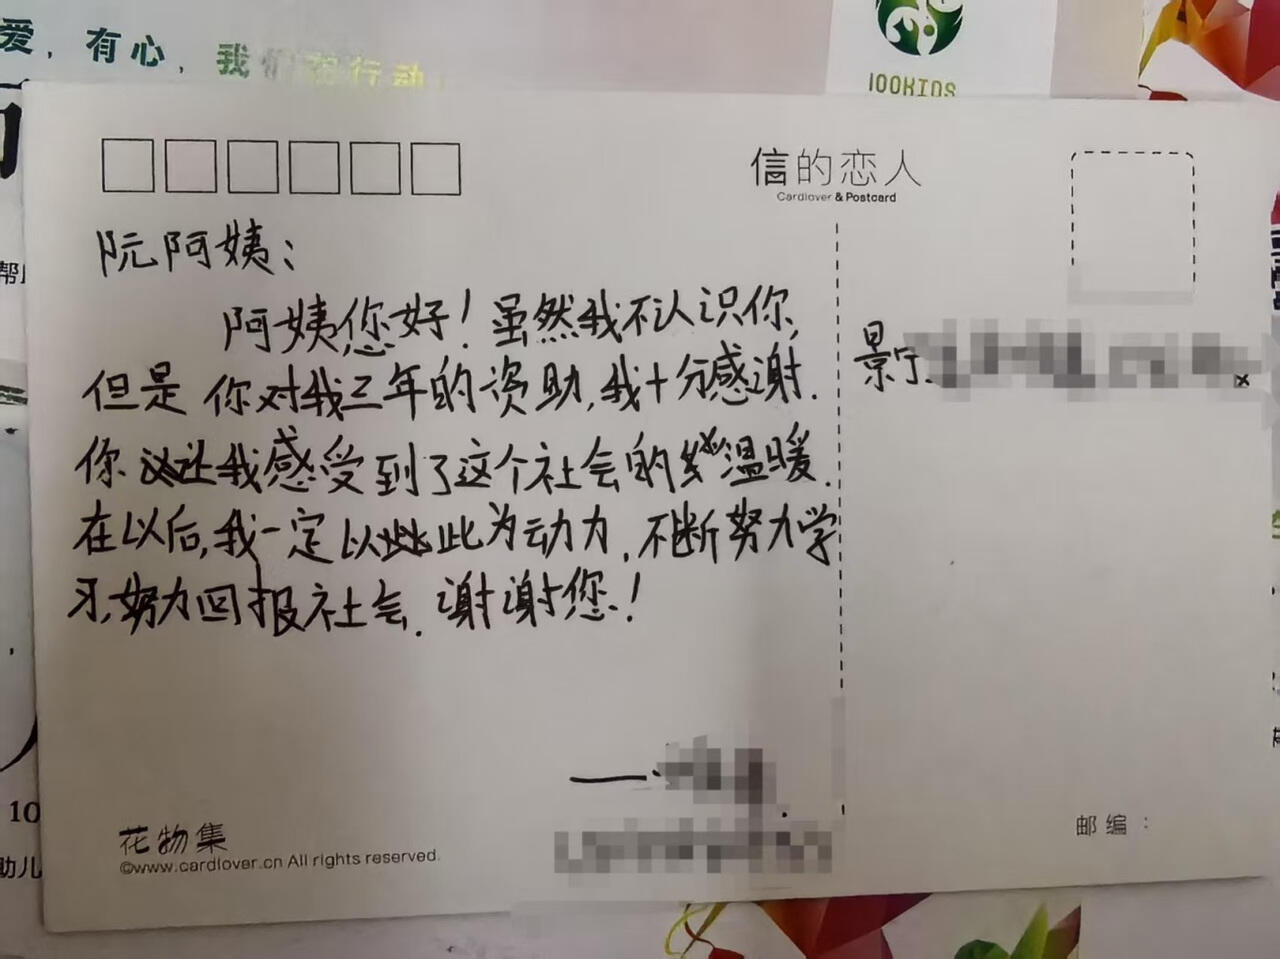 爱，有心，我们在行动
100KIDS
信的恋人
Cardlover & Postcard
阮阿姨：
阿姨您好！虽然我不认识你，
但是你对我三年的资助，我十分感谢．
你让我感受到了这个社会的温暖．
在以后，我一定以此为动力，不断努力学
习，努力回报社会．谢谢您！
景宁
——
花物集
©www.cardlover.cn All rights reserved.
邮编：
帮
10
助儿